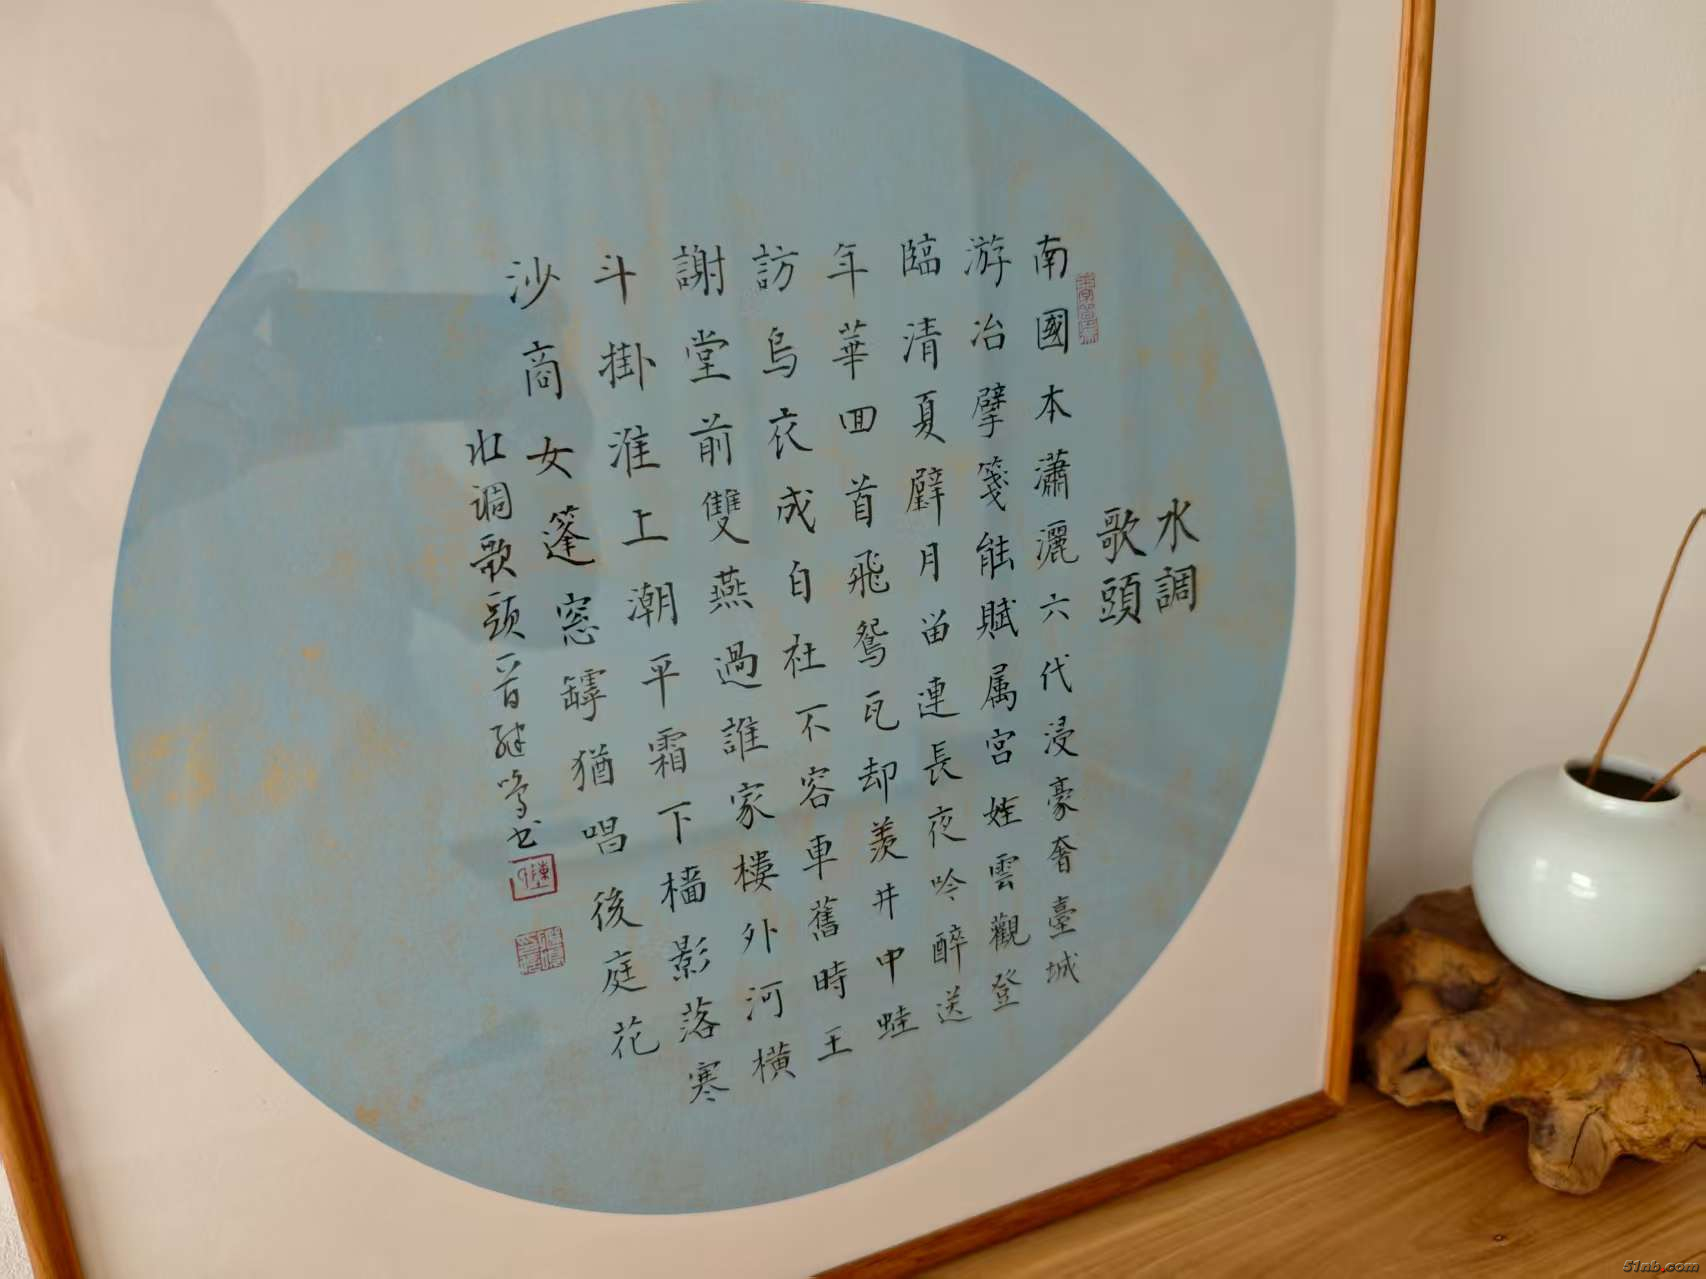 水調
歌頭
南國本瀟灑六代浸豪奢臺城
游冶擘箋能賦属宮娃雲觀登
臨清夏璧月畄連長夜吟醉送
年華回首飛鴛瓦却羨井中蛙
訪烏衣成白社不容車舊時王
謝堂前雙燕過誰家樓外河橫
斗掛淮上潮平霜下檣影落寒
沙商女篷窓罅猶唱後庭花
水调歌頭一首
51nb.com